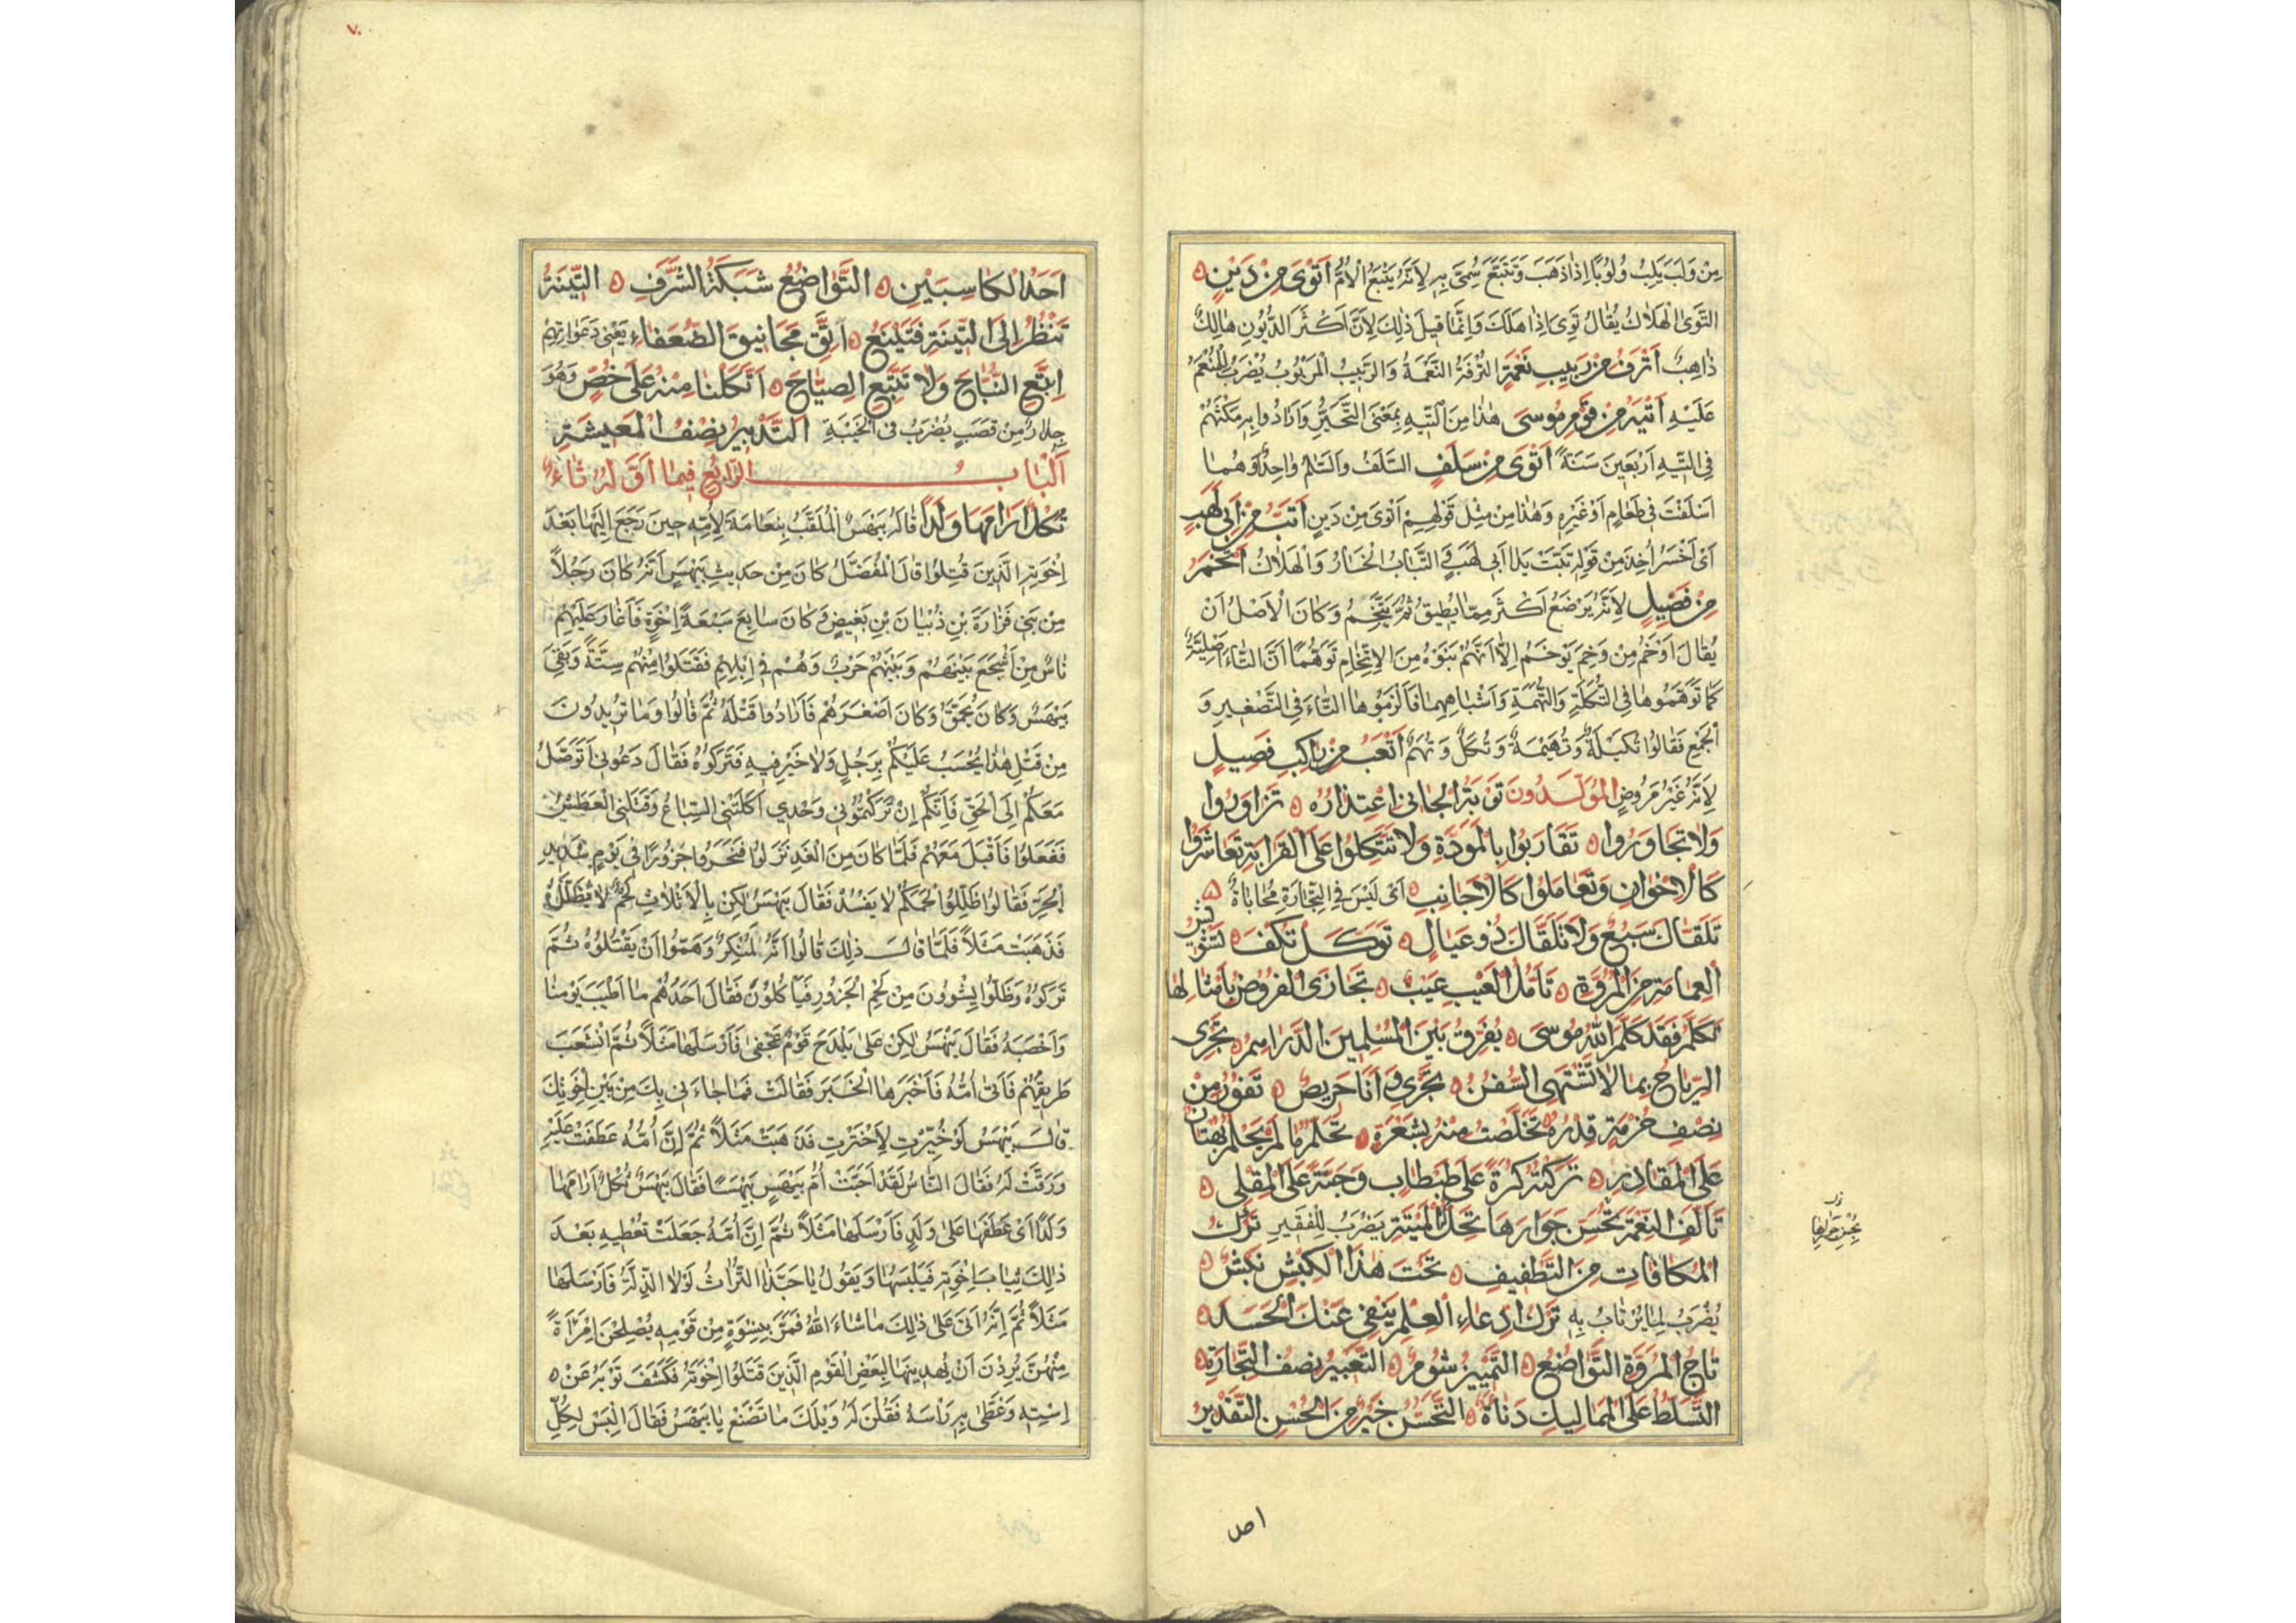 مِنْ وَلَبَ يَلِبُ وُلُوبًا اِذَا ذَهَبَ وَتَتَبَّعَ سُمِّيَ بِهِ لِاَنَّهُ يَتْبَعُ الْاُمَّ اَتْوَى مِنْ دَيْنٍ
التَّوَى الْهَلَاكُ يُقَالُ تَوِىَ اِذَا هَلَكَ وَاِنَّمَا قِيلَ ذٰلِكَ لِاَنَّ اَكْثَرَ الدُّيُونِ هَالِكٌ
ذَاهِبٌ اَتْرَفُ مِنْ رَبِيبِ نَعْمَةٍ التُّرْفَةُ النَّعْمَةُ وَالرَّبِيبُ الْمَرْبُوبُ يُضْرَبُ لِلْمُنْعَمِ
عَلَيْهِ اَتْيَهُ مِنْ قَوْمِ مُوسَى هٰذَا مِنَ التِّيهِ بِمَعْنَى التَّحَيُّرِ وَاَرَادُوا بِهِ مَكْثَهُمْ
فِى التِّيهِ اَرْبَعِينَ سَنَةً اَتْوَى مِنْ سَلَفٍ السَّلَفُ وَالسَّلَمُ وَاحِدٌ وَهُمَا
اَسْلَفْتَ فِى طَعَامٍ اَوْ غَيْرِهِ وَهٰذَا مِنْ مِثْلِ قَوْلِهِمْ اَتْوَى مِنْ دَيْنٍ اَتَبُّ مِنْ اَبِى لَهَبٍ
اَىْ اَخْسَرُ اُخِذَ مِنْ قَوْلِهِ تَبَّتْ يَدَا اَبِى لَهَبٍ التَّبَابُ الْخَسَارُ وَالْهَلَاكُ اَتْخَمُ
مِنْ فَصِيلٍ لِاَنَّهُ يَرْضَعُ اَكْثَرَ مِمَّا يُطِيقُ ثُمَّ يَتَّخِمُ وَكَانَ الْاَصْلُ اَنْ
يُقَالَ اَوْخَمُ مِنْ وَخِمَ يَوْخَمُ اِلَّا اَنَّهُمْ بَنَوْهُ مِنَ الْاِتِّخَامِ تَوَهُّمًا اَنَّ التَّاءَ اَصْلِيَّةٌ
كَمَا تَوَهَّمُوهَا فِى التُّكَلَةِ وَالتُّهَمَةِ وَاَشْبَاهِهِمَا فَاَلْزَمُوهَا التَّاءَ فِى التَّصْغِيرِ وَ
الْجَمْعِ فَقَالُوا تُكَيْلَةٌ وَتُهَيْمَةٌ وَتُكَلٌ وَتُهَمٌ اَتْعَبُ مِنْ رَاكِبِ فَصِيلٍ
لِاَنَّهُ غَيْرُ مَرُوضٍ الْمُوَلَّدُونَ تَوْبَةُ الْجَانِى اعْتِذَارُهُ تَزَاوَرُوا
وَلَا تَجَاوَرُوا تَقَارَبُوا بِالْمَوَدَّةِ وَلَا تَتَّكِلُوا عَلَى الْقَرَابَةِ تَعَاشَرُوا
كَالْاِخْوَانِ وَتَعَامَلُوا كَالْاَجَانِبِ اَىْ لَيْسَ فِى التِّجَارَةِ مُحَابَاةٌ
تَلَقَّاكَ سَبُعٌ وَلَا تَلَقَّاكَ ذُو عِيَالٍ تَوَكَّلْ تُكْفَ تَشْوِيشُ
الْعِمَامَةِ مِنَ الْمُرُوَّةِ تَأَمُّلُ الْعَيْبِ عَيْبٌ تُجَازَى الْفُرُوضُ بِاَمْثَالِهَا
تَكَلَّمَ فَقَدْ كَلَّمَ اللّٰهُ مُوسَى يُفَرِّقُ بَيْنَ الْمُسْلِمِينَ الدَّرَاهِمُ تَجْرِى
الرِّيَاحُ بِمَا لَا تَشْتَهِى السُّفُنُ تَجَرَّى وَاَنَا حَرِيصٌ تَفُورُ مِنْ
نِصْفِ خُزْمَةٍ قِدْرُهُ تَخَلَّصْتُ مِنْهُ بِشَعْرَةٍ تَحَلَّمَ مَا لَمْ يَحْلُمْ بُهْتَانٌ
عَلَى الْمَقَادِيرِ تَرَكْتُهُ كُرَةً عَلَى طَبْطَابٍ وَحَبَّةً عَلَى الْمِقْلَى
تَاَلَّفِ النِّعْمَةَ بِحُسْنِ جِوَارِهَا تَحِلُّ لَهُ الْمَيْتَةُ يُضْرَبُ لِلْفَقِيرِ تَرْكُ
الْمُكَافَاتِ مِنَ التَّطْفِيفِ تَحْتَ هٰذَا الْكَبْشِ نَبْشٌ
يُضْرَبُ لِمَا يُرْتَابُ بِهِ تَرْكُ ادِّعَاءِ الْعِلْمِ يَنْفِى عَنْكَ الْحَسَدَ
تَاجُ الْمُرُوَّةِ التَّوَاضُعُ التَّمْيِيزُ شُومٌ التَّعْبِيرُ نِصْفُ التِّجَارَةِ
التَّسَلُّطُ عَلَى الْمَمَالِيكِ دَنَاءَةٌ التَّحَسُّنُ خَيْرٌ مِنَ الْحُسْنِ التَّقْدِيرُ
احد
٧٠
اَحَدُ الْكَاسِبَيْنِ التَّوَاضُعُ شَبَكَةُ الشَّرَفِ التِّينَةُ
تَنْظُرُ اِلَى التِّينَةِ فَتَيْنَعُ اتَّقِ مَجَانِيقَ الضُّعَفَاءِ يَعْنِى دَعَوَاتِهِمْ
اِتَّبِعِ النُّبَاحَ وَلَا تَتَّبِعِ الصِّيَاحَ اِتَّكَلْنَا مِنْهُ عَلَى خُصٍّ وَهُوَ
جِدَارٌ مِنْ قَصَبٍ يُضْرَبُ فِى الْخَيْبَةِ اَلتَّدْبِيرُ نِصْفُ الْمَعِيشَةِ
اَلْبَابُ الرَّابِعُ فِيمَا اَوَّلُهُ ثَاءٌ
ثُكْلٌ اَرْاَمَهَا وَلَدًا قَالَهُ بَيْهَسٌ الْمُلَقَّبُ بِنَعَامَةَ لِاُمِّهِ حِينَ رَجَعَ اِلَيْهَا بَعْدَ
اِخْوَتِهِ الَّذِينَ قُتِلُوا قَالَ الْمُفَضَّلُ كَانَ مِنْ حَدِيثِ بَيْهَسٍ اَنَّهُ كَانَ رَجُلًا
مِنْ بَنِى فَزَارَةَ بْنِ ذُبْيَانَ بْنِ بَغِيضٍ وَكَانَ سَابِعَ سَبْعَةِ اِخْوَةٍ فَاَغَارَ عَلَيْهِمْ
نَاسٌ مِنْ اَشْجَعَ بَيْنَهُمْ وَبَيْنَهُمْ حَرْبٌ وَهُمْ فِى اِبِلِهِمْ فَقَتَلُوا مِنْهُمْ سِتَّةً وَبَقِىَ
بَيْهَسٌ وَكَانَ يُحَمَّقُ وَكَانَ اَصْغَرَهُمْ فَاَرَادُوا قَتْلَهُ ثُمَّ قَالُوا وَمَا تُرِيدُونَ
مِنْ قَتْلِ هٰذَا يُحْسَبُ عَلَيْكُمْ بِرَجُلٍ وَلَا خَيْرَ فِيهِ فَتَرَكُوهُ فَقَالَ دَعُونِى اَتَوَصَّلُ
مَعَكُمْ اِلَى الْحَىِّ فَاِنَّكُمْ اِنْ تَرَكْتُمُونِى وَحْدِى اَكَلَتْنِى السِّبَاعُ وَقَتَلَنِى الْعَطَشُ
فَفَعَلُوا فَاَقْبَلَ مَعَهُمْ فَلَمَّا كَانَ مِنَ الْغَدِ نَزَلُوا فَنَحَرُوا جَزُورًا فِى يَوْمٍ شَدِيدِ
الْحَرِّ فَقَالُوا ظَلِّلُوا لَحْمَكُمْ لَا يَفْسُدْ فَقَالَ بَيْهَسٌ لٰكِنْ بِالْاَثَلَاثِ لَحْمٌ لَا يُظَلَّلُ
فَذَهَبَتْ مَثَلًا فَلَمَّا قَالَ ذٰلِكَ قَالُوا اِنَّهُ لَمُنْكَرٌ وَهَمُّوا اَنْ يَقْتُلُوهُ ثُمَّ
تَرَكُوهُ وَظَلُّوا يَشْوُونَ مِنْ لَحْمِ الْجَزُورِ فَيَأْكُلُونَ فَقَالَ اَحَدُهُمْ مَا اَطْيَبَ يَوْمَنَا
وَاَخْصَبَهُ فَقَالَ بَيْهَسٌ لٰكِنْ عَلَى بَلْدَحَ قَوْمٌ عَجْفَى فَاَرْسَلَهَا مَثَلًا ثُمَّ انْشَعَبَ
طَرِيقُهُمْ فَاَتَى اُمَّهُ فَاَخْبَرَهَا الْخَبَرَ فَقَالَتْ فَمَا جَاءَنِى بِكَ مِنْ بَيْنِ اِخْوَتِكَ
قَالَ بَيْهَسٌ لَوْ خُيِّرْتِ لَاخْتَرْتِ فَذَهَبَتْ مَثَلًا ثُمَّ اِنَّ اُمَّهُ عَطَفَتْ عَلَيْهِ
وَرَقَّتْ لَهُ فَقَالَ النَّاسُ لَقَدْ اَحَبَّتْ اُمُّ بَيْهَسٍ بَيْهَسًا فَقَالَ بَيْهَسٌ ثُكْلٌ اَرْاَمَهَا
وَلَدًا اَىْ عَطَفَهَا عَلَى وَلَدٍ فَاَرْسَلَهَا مَثَلًا ثُمَّ اِنَّ اُمَّهُ جَعَلَتْ تُعْطِيهِ بَعْدَ
ذٰلِكَ ثِيَابَ اِخْوَتِهِ فَيَلْبَسُهَا وَيَقُولُ يَا حَبَّذَا التُّرَاثُ لَوْلَا الذِّلَّةُ فَاَرْسَلَهَا
مَثَلًا ثُمَّ اِنَّهُ اَتَى عَلَى ذٰلِكَ مَا شَاءَ اللّٰهُ فَمَرَّ بِنِسْوَةٍ مِنْ قَوْمِهِ يُصْلِحْنَ امْرَاَةً
مِنْهُنَّ يُرِدْنَ اَنْ يُهْدِينَهَا لِبَعْضِ الْقَوْمِ الَّذِينَ قَتَلُوا اِخْوَتَهُ فَكَشَفَ ثَوْبَهُ عَنْ
اِسْتِهِ وَغَطَّى بِهِ رَأْسَهُ فَقُلْنَ لَهُ وَيْلَكَ مَا تَصْنَعُ يَا بَيْهَسُ فَقَالَ اَلْبَسُ لِكُلِّ